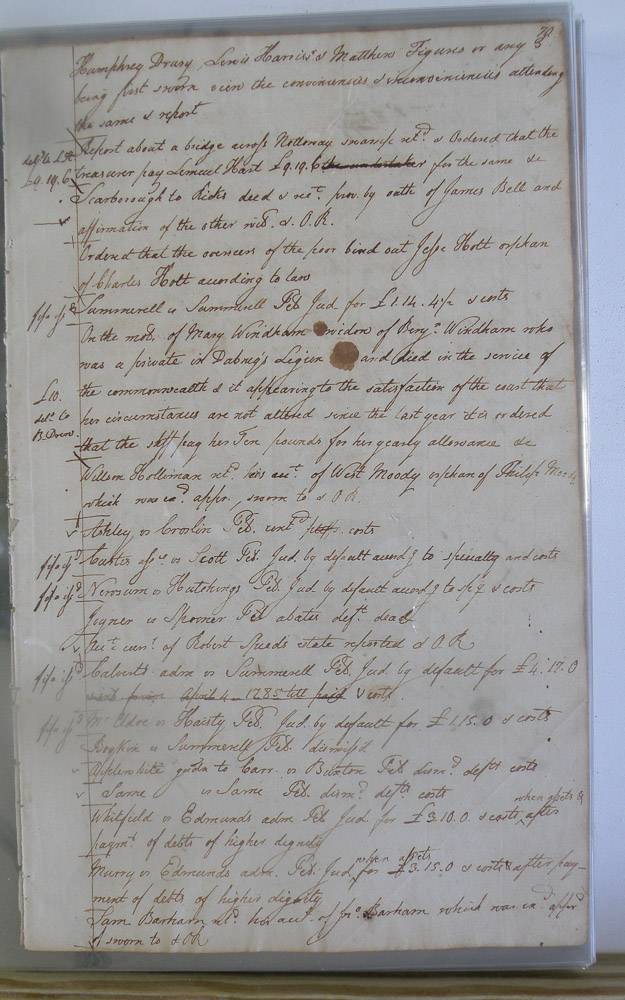 Humphrey Drury, Lewis Harriss & Matthew Figures or any 3
being first sworn view the conveniencies & inconveniencies attending
the same & report
Report about a bridge across Nottoway swamp retd. & Ordered that the
treasurer pay Lemuel Hart £9.19.6 the undertaker for the same &c
£9.19.6
Scarborough to Ricks deed & rect. prov. by oath of James Bell and
affirmation of the other wits. & O.R.
Ordered that the overseers of the poor bind out Jesse Holt orphan
of Charles Holt according to law
Summerell vs Summerell Pet. Jud for £1.14.4½ & costs
On the mot. of Mary Windham widow of Benja. Windham who
was a private in Dabney's Legion and died in the service of
the commonwealth & it appearing to the satisfaction of the court that
£10.
her circumstances are not altered since the last year it is ordered
B. Drew.
that the shff pay her Ten pounds for her yearly allowance &c
Willson Holliman retd. his acct. of West Moody orphan of Philip Moody
which was exd. appr., sworn to & O.R.
Ashley vs Croslin Pet. contd. costs
Carter vs Scott Pet. Jud. by default accordg to specialty and costs
Newsum vs Hutchings Pet. Jud by default accordg to spy & costs
Joyner vs Spooner Pet abates deft. dead
curt. of Robert Speeds estate reported & O.R
Calverts adm vs Summerell Pet. Jud. by default for £4.17.0
April 4 1785 till paid & costs
Haisty Pet. Jud. by default for £1.15.0 & costs
Boykin vs Summerell Pet. dismisd
gudn to Carr vs Buxton Pet dismd. defts. costs
Same vs Same Pet. dismd. defts. costs
when assets &
Whitfield vs Edmunds adm Pet Jud for £3.10.0 & costs after
paymt. of debts of higher dignity
when assets
Murry vs Edmunds adm. Pet. Jud. for £3.15.0 & costs & after pay-
ment of debts of higher dignity
Sam Barham retd. his acct. of Jno. Barham which was exd. apprd
& sworn to & OR